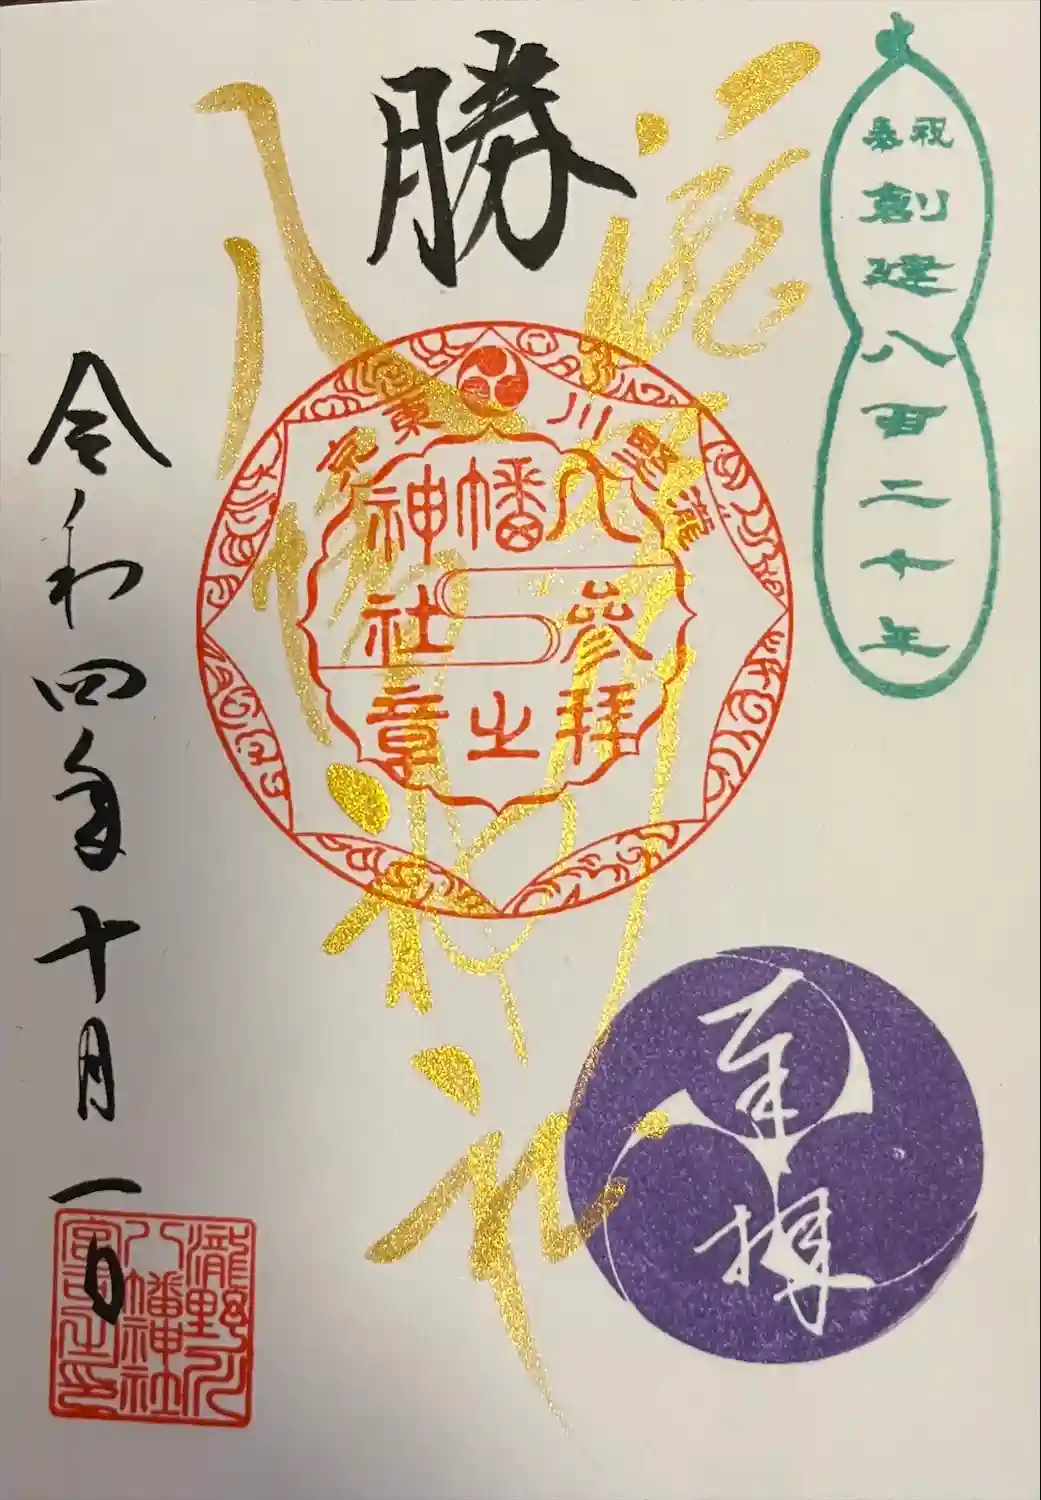 奉祝
創建八百二十年
勝
瀧野川
八幡神社
瀧野川
東京
八幡神社
參拜之章
奉拝
令和四年十月一日
瀧野川
八幡神社
宮司之印